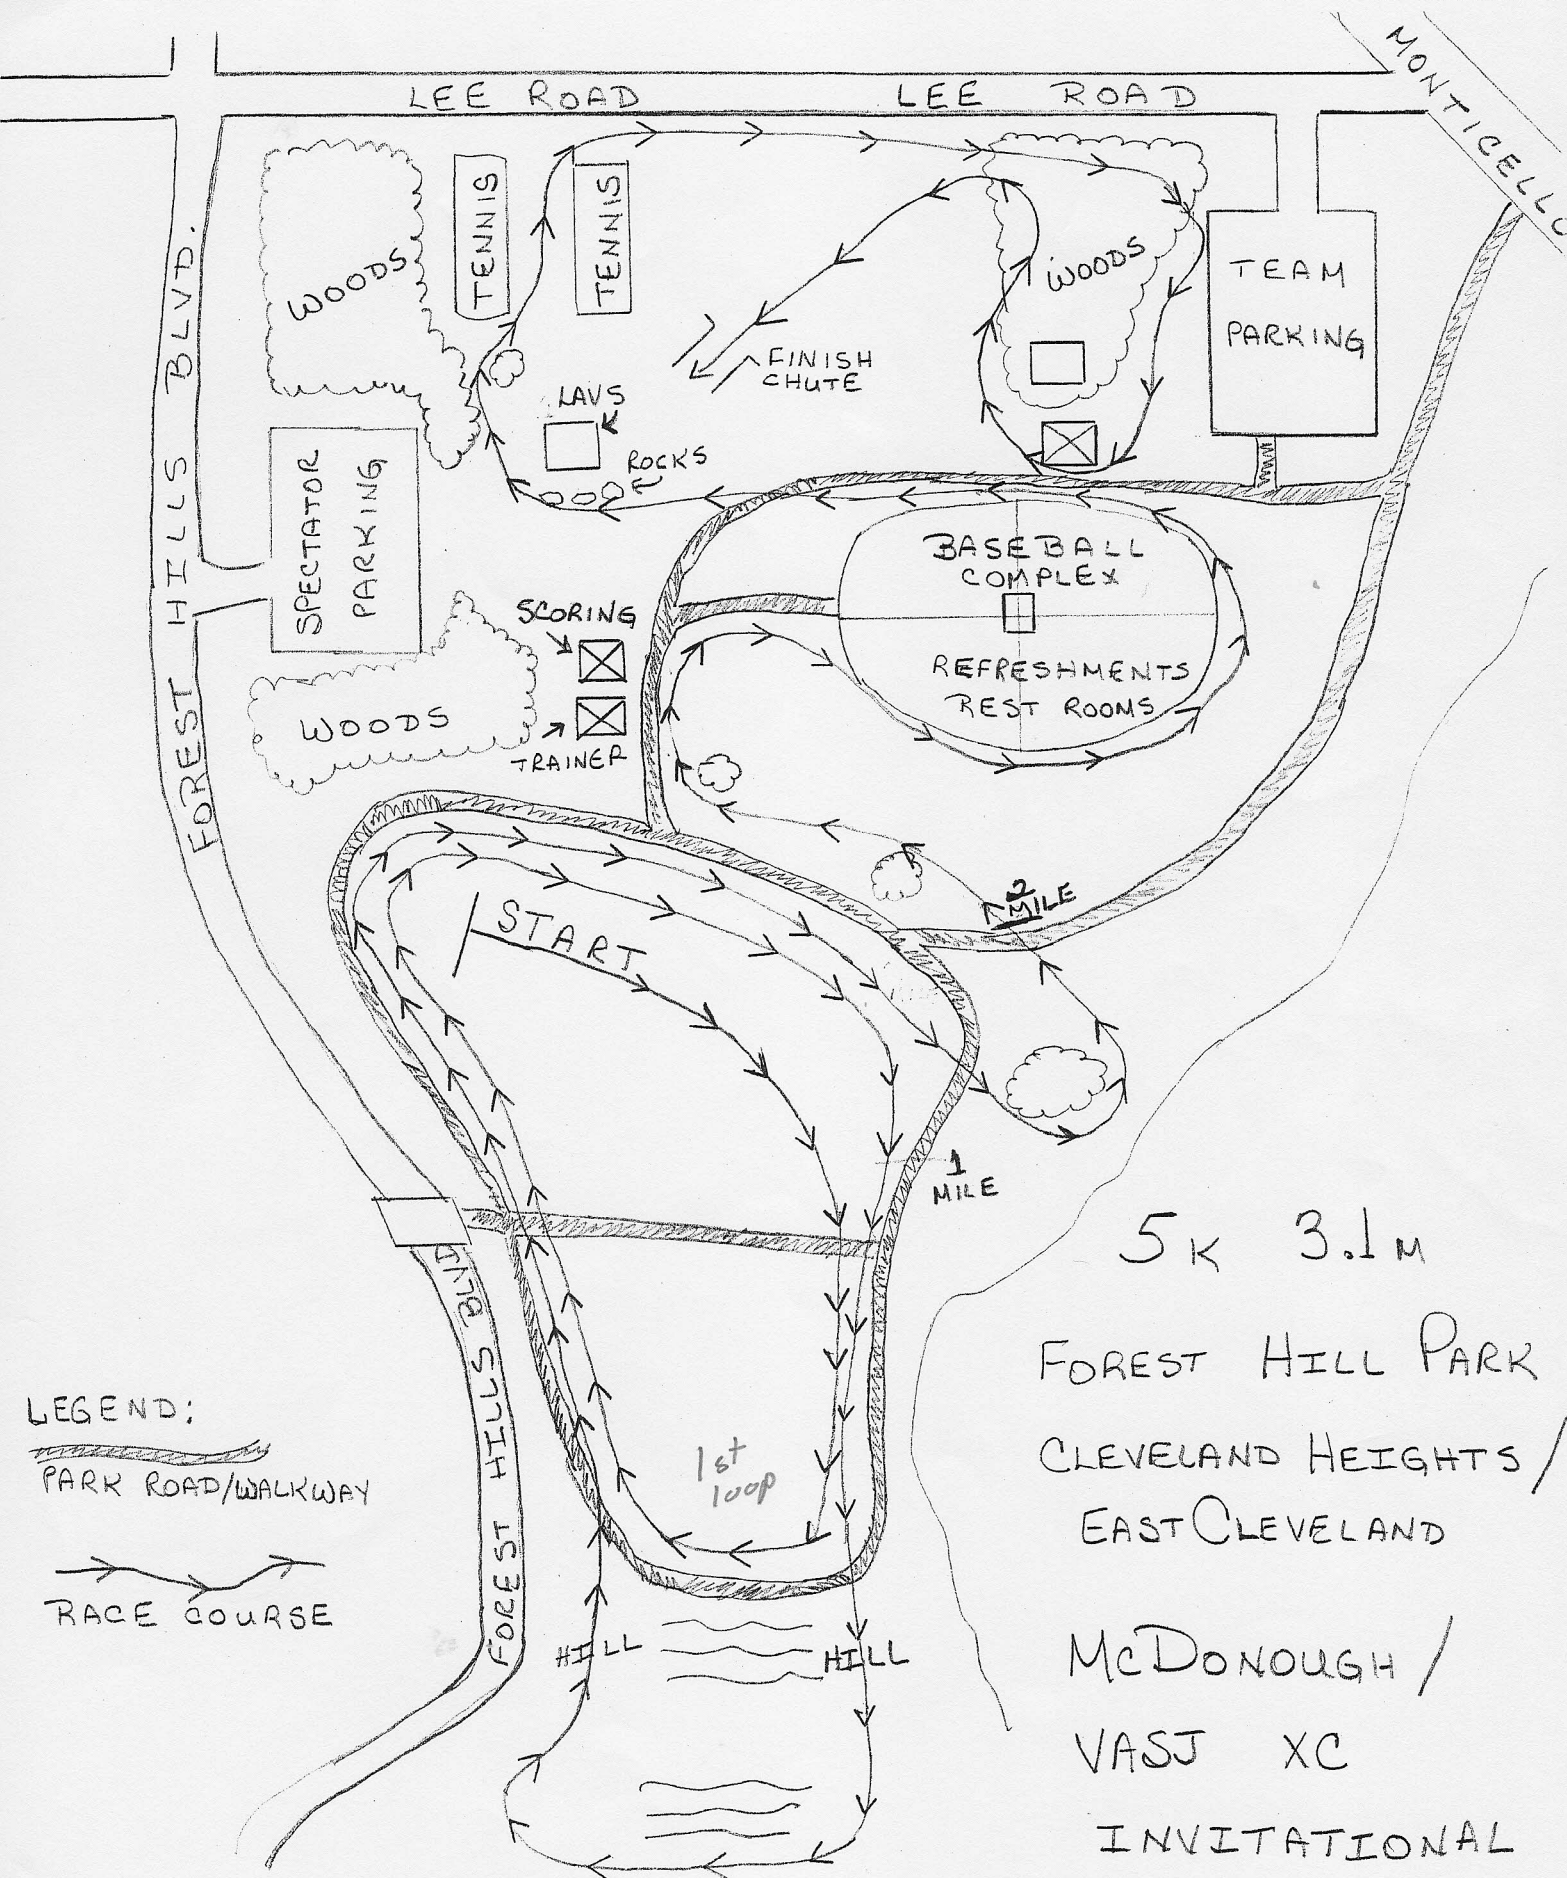 LEE ROAD
LEE ROAD
MONTICELLO
FOREST HILLS BLVD.
WOODS
TENNIS
TENNIS
WOODS
TEAM
PARKING
FINISH
CHUTE
LAVS
ROCKS
SPECTATOR
PARKING
BASEBALL
COMPLEX
REFRESHMENTS
REST ROOMS
SCORING
TRAINER
WOODS
2
MILE
START
1
MILE
FOREST HILLS BLVD
1st
loop
HILL
HILL
LEGEND:
PARK ROAD/WALKWAY
RACE COURSE
5K 3.1M
FOREST HILL PARK
CLEVELAND HEIGHTS/
EAST CLEVELAND
McDONOUGH/
VASJ XC
INVITATIONAL